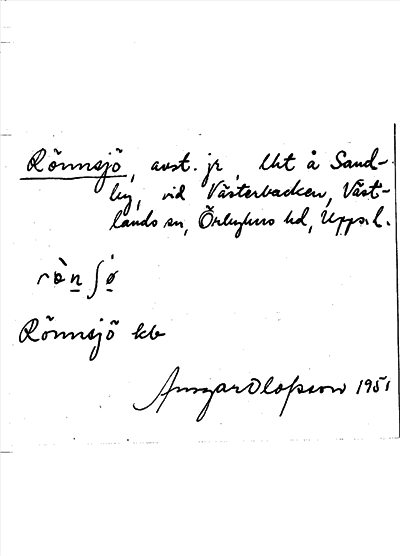 Rönnsjö, avst. jr, lht å Sand-
by, vid Västerbacken, Väst-
lands sn, Örbyhus hd, Upps. l.
Rönnsjö kb
Ansgar Olofsson 1951